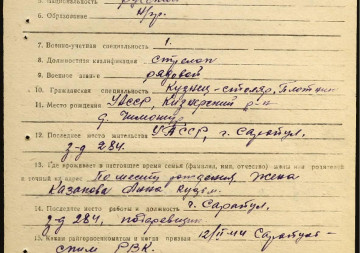 5. Национальность русский
6. Образование н/ср.
7. Военно-учетная специальность 1.
8. Должностная квалификация стрелок
9. Военное звание рядовой
10. Гражданская специальность Кузнец-столяр, Плотник
11. Место рождения УАССР, Кизнерский р-н
д.
12. Последнее место жительства УАССР, г. Сарапул,
з-д 284.
13. Где проживает в настоящее время семья (фамилия, имя, отчество) жены или родителей
и точный их адрес По месту рождения жена
Казакова Анна Кузьм.
14. Последнее место работы и должность г. Сарапул,
з-д 284,
15. Каким райгорвоенкоматом и когда призван Сарапуль-
ским РВК.